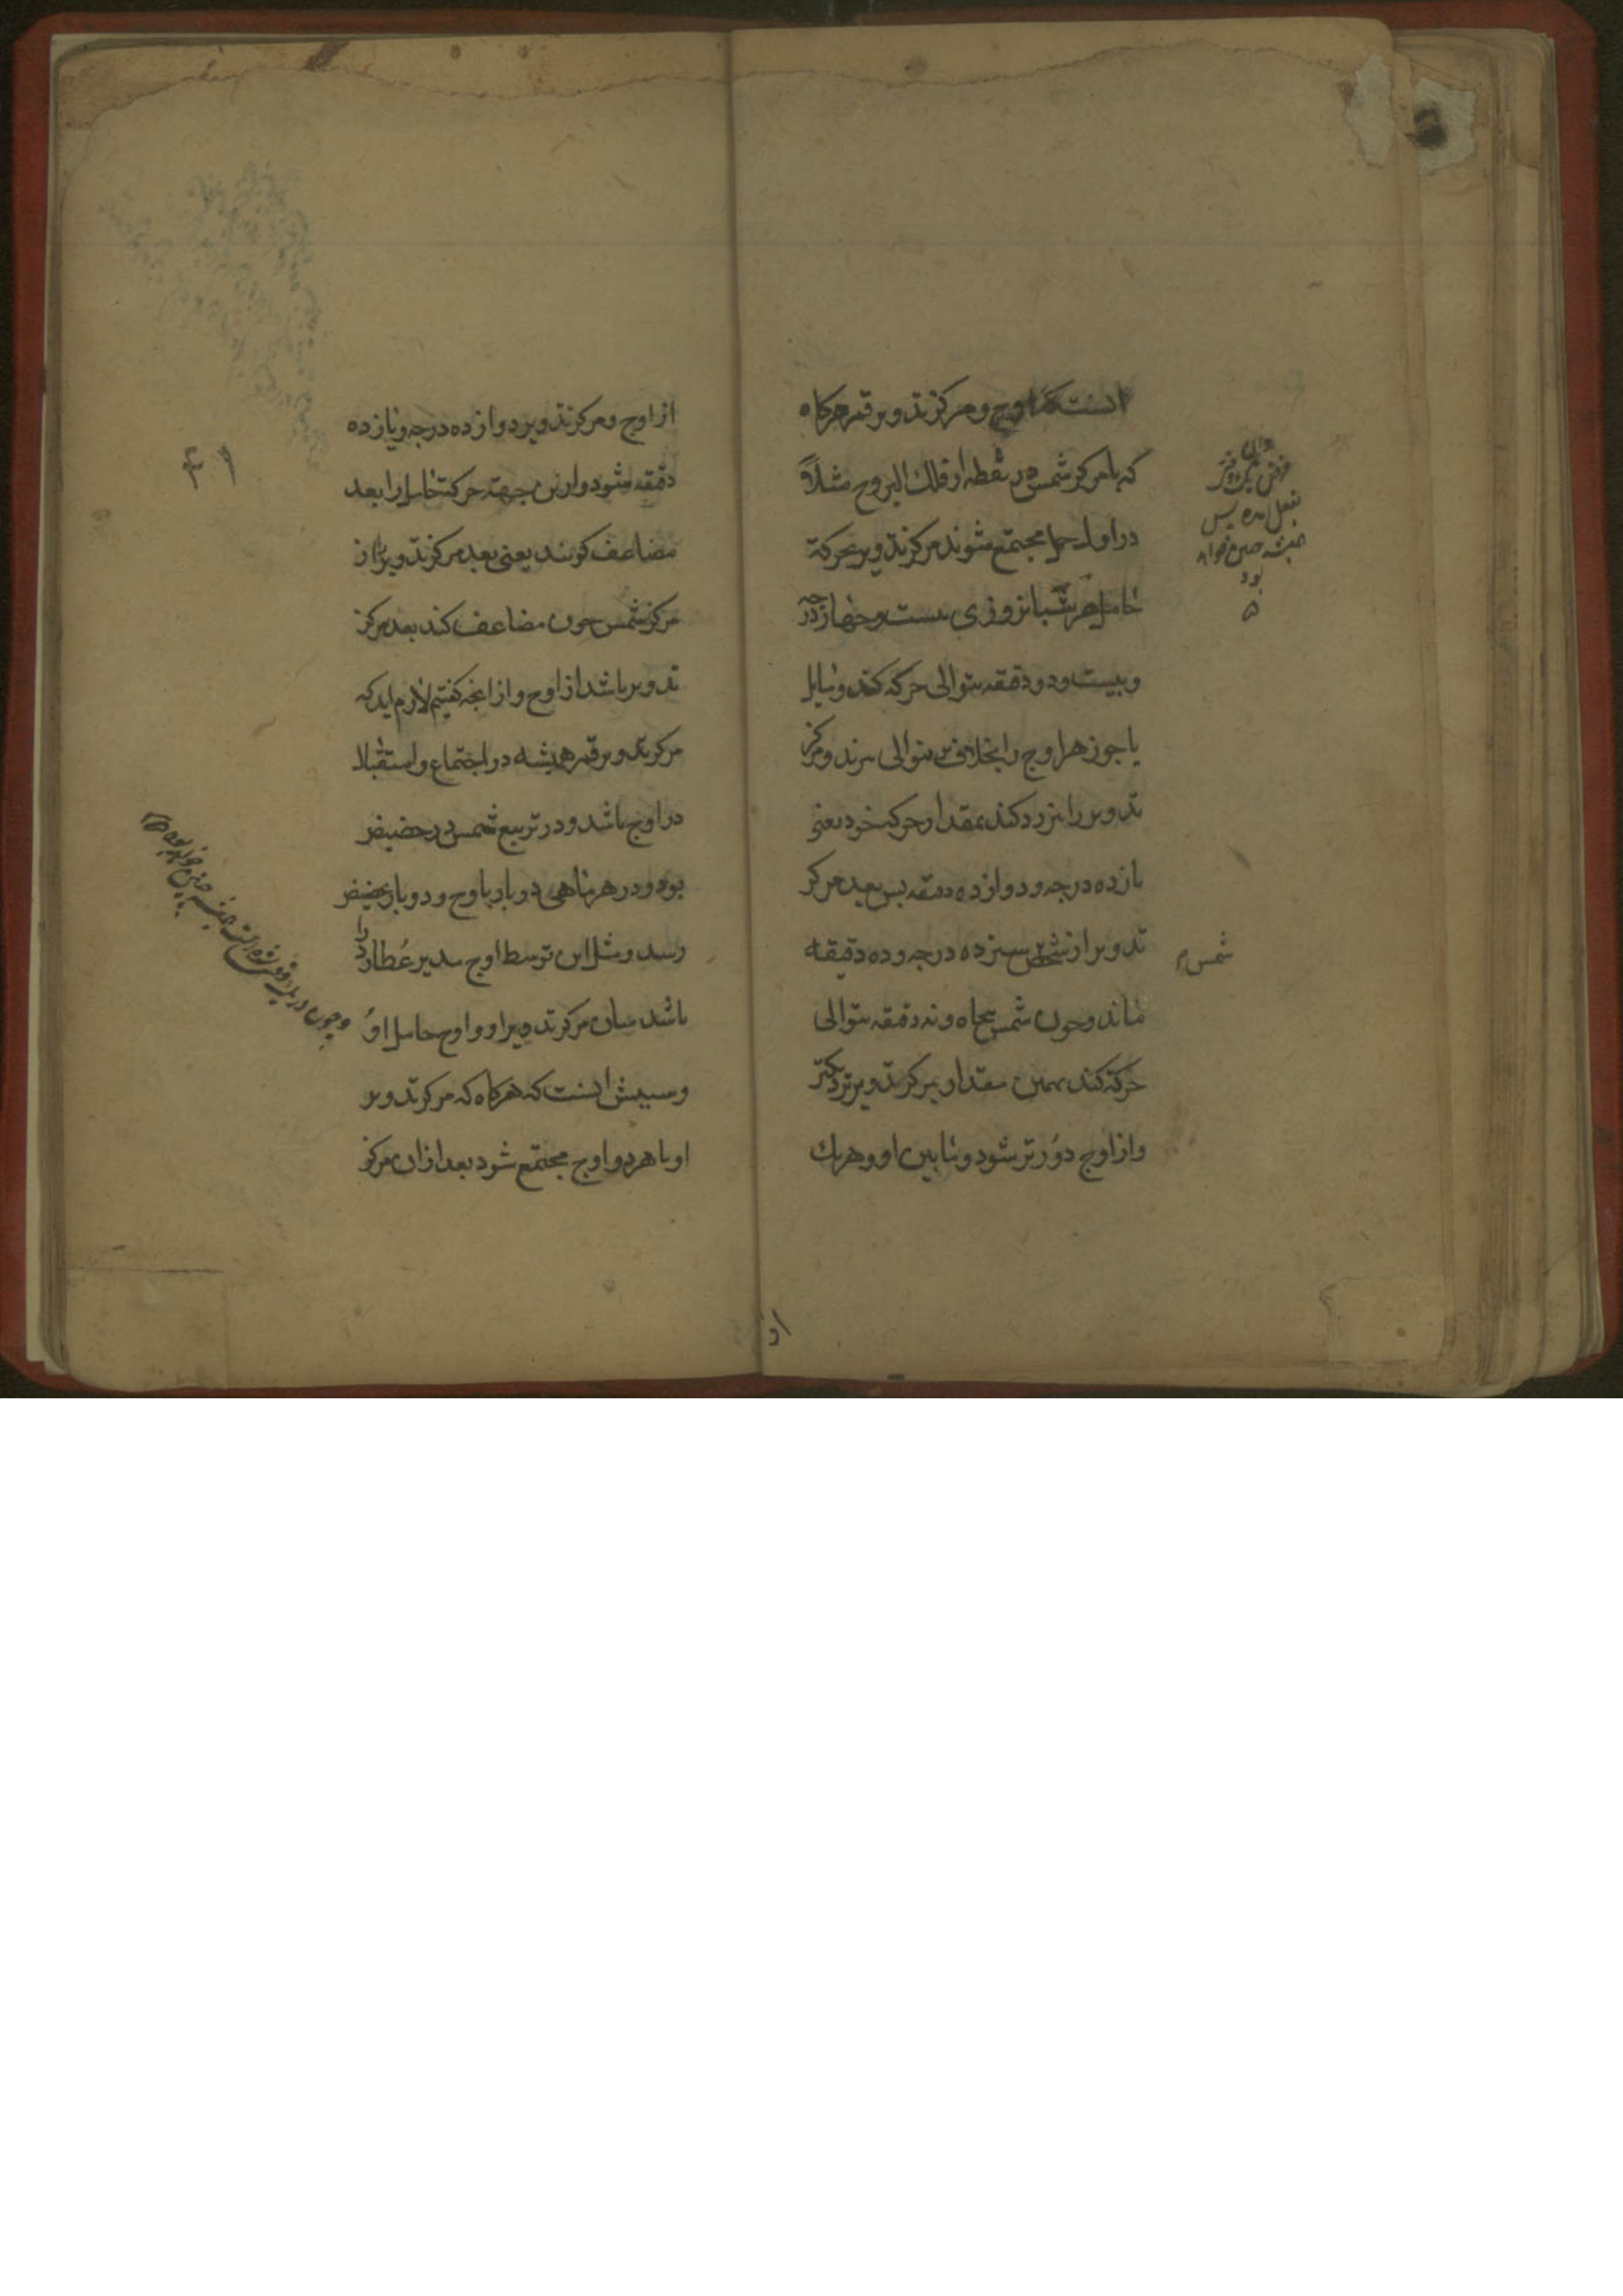 انست که اوج و مرکز تدویر قمر هرکاه
که با مرکز شمس در نقطه از فلك البروج مثلاً
در اول حمل مجتمع شوند مرکز تدویر بحرکة
حامل هر شبانروزی بیست و چهار درجه
و بیست و دو دقیقه بتوالی حرکة کند و مایل
یا جوزهر اوج را بخلاف توالی برند و مرکز
تدویر را نیز رد کند بمقدار حرکة خود یعنی
یازده درجه و دوازده دقیقه پس بعد مرکز
تدویر از شمس سیزده درجه و ده دقیقه
ماند و چون شمس پنجاه و نه دقیقه بتوالی
حرکة کند بهمین مقدار بمرکز تدویر نزدیکتر
و از اوج دورتر شود و مابین او و هریك
همیشه چنین خواهد
بود
شمس
از
از اوج و مرکز تدویر دوازده درجه و یازده
دقیقه شود و ازین جهة حرکة حامل را بعد
مضاعف کویند یعنی بعد مرکز تدویر از
مرکز شمس چون مضاعف کند بعد مرکز
تدویر باشد از اوج و از انجه کفتیم لازم اید که
مرکز تدویر قمر همیشه در اجتماع و استقبال
در اوج باشد و در تربیع شمس در حضیض
بود و در هر ماهی دو بار باوج و دو بار بحضیض
رسد و مثل این توسط اوج مدیر عُطارد را
باشد میان مرکز تدویر او و اوج حامل اوُ
و سببش انست که هرکاه که مرکز تدویر
او با هر دو اوج مجتمع شود بعد ازان مرکز